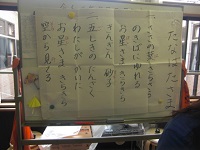 たなばたさま
ささの葉さらさら
のきばにゆれる
お星さま きらきら
きんぎん 砂子
五しきのたんざく
わたしがかいた
お星さま きらきら
空から見てる